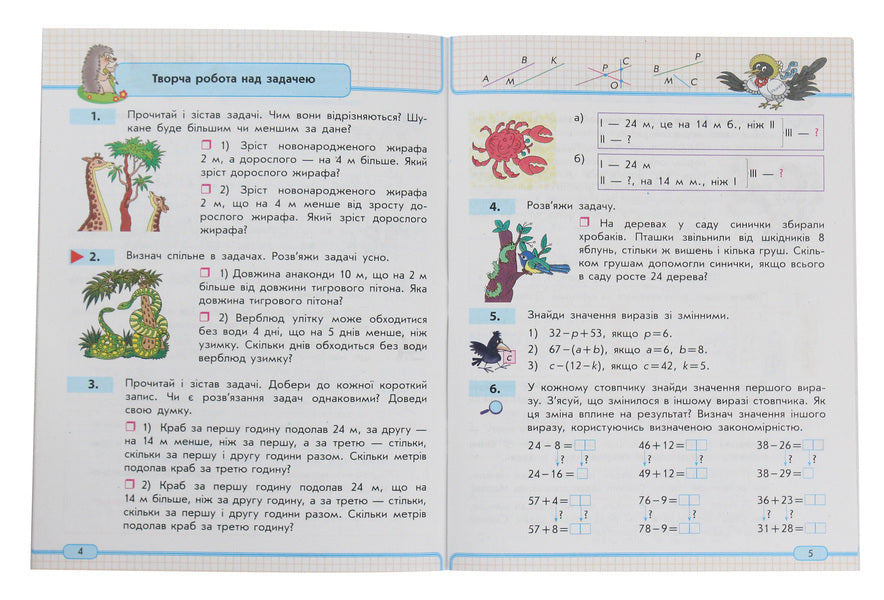 Творча робота над задачею
1. Прочитай і зістав задачі. Чим вони відрізняються? Шу-
кане буде більшим чи меншим за дане?
1) Зріст новонародженого жирафа
2 м, а дорослого — на 4 м більше. Який
зріст дорослого жирафа?
2) Зріст новонародженого жирафа
2 м, що на 4 м менше від зросту до-
рослого жирафа. Який зріст дорослого
жирафа?
2. Визнач спільне в задачах. Розв'яжи задачі усно.
1) Довжина анаконди 10 м, що на 2 м
більше від довжини тигрового пітона. Яка
довжина тигрового пітона?
2) Верблюд улітку може обходитися
без води 4 дні, що на 5 днів менше, ніж
узимку. Скільки днів обходиться без води
верблюд узимку?
3. Прочитай і зістав задачі. Добери до кожної короткий
запис. Чи є розв'язання задач однаковими? Доведи
свою думку.
1) Краб за першу годину подолав 24 м, за другу —
на 14 м менше, ніж за першу, а за третю — стільки,
скільки за першу і другу години разом. Скільки метрів
подолав краб за третю годину?
2) Краб за першу годину подолав 24 м, що на
14 м більше, ніж за другу годину, а за третю — стільки,
скільки за першу і другу години разом. Скільки метрів
подолав краб за третю годину?
4
A B M K P C O B P M C
а) I — 24 м, це на 14 м б., ніж II
II — ?
III — ?
б) I — 24 м
II — ?, на 14 м м., ніж I
III — ?
4. Розв'яжи задачу.
На деревах у саду синички збирали
хробаків. Пташки звільнили від шкідників 8
яблунь, стільки ж вишень і кілька груш. Скіль-
ком грушам допомогли синички, якщо всього
в саду росте 24 дерева?
5. Знайди значення виразів зі змінними.
1) 32−p+53, якщо p=6.
2) 67−(a+b), якщо a=6, b=8.
3) c−(12−k), якщо c=42, k=5.
c
6. У кожному стовпчику знайди значення першого вира-
зу. З'ясуй, що змінилося в іншому виразі стовпчика. Як
ця зміна вплине на результат? Визнач значення іншого
виразу, користуючись визначеною закономірністю.
24−8= 46+12= 38−26=
? ? ? ? ? ?
24−16= 49+12= 38−29=
57+4= 76−9= 36+23=
? ? ? ? ? ?
57+8= 78−9= 31+28=
5